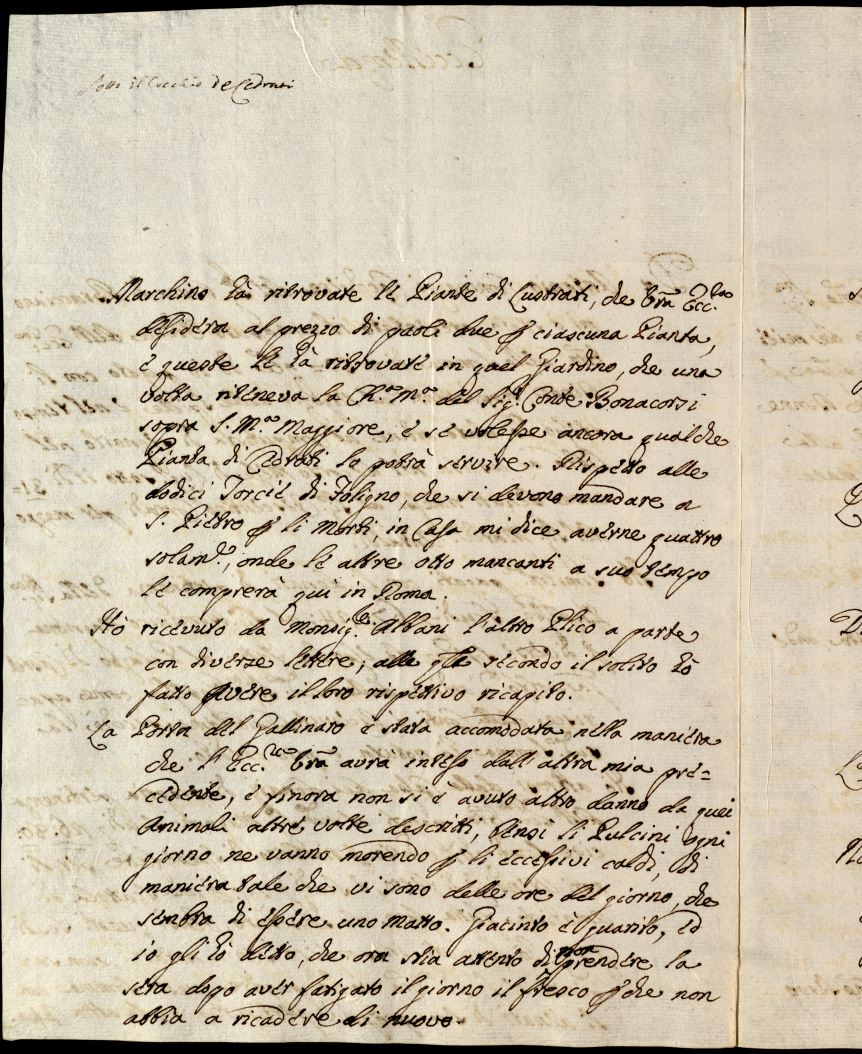 Sotto il Cocchio de Cedrati
Marchino hà ritrovate le Piante di Custrati, che Vrã Ecc.
desidera al prezzo di paoli due p ciascuna Pianta,
e queste le hà ritrovate in quel Giardino, che una
volta riteneva la Ch. M. del Sig. Conte Bonacorsi
sopra S. M. Maggiore, e se volesse ancora qualche
Pianta di Cedrati la potrà servire. Rispetto alle
dodici Torcie di Foligno, che si devono mandare a
S. Pietro p li Morti, in Casa mi dice averne quattro
solam.te, onde le altre otto mancanti a suo tempo
le comprerà qui in Roma.
Hò ricevuto da Monsig. Albani l'altro Plico a parte
con diverse lettere, alle q̃li secondo il solito hò
fatto avere il loro rispettivo ricapito.
La Porta del Gallinaro è stata accomodata nella maniera
che l'Ecc. Vrã avrà inteso dall'altra mia pre=
cedente, e finora non si è avuto altro danno da quei
Animali altre volte descritti, bensì li Pulcini ogni
giorno ne vanno morendo p li eccessivi caldi, di
maniera tale che vi sono delle ore del giorno, che
sembra di essere uno matto. Giacinto è guarito, ed
io gli hò detto, che ora stia attento di non prendere la
sera dopo aver fatigato il giorno il fresco p che non
abbia a ricadere di nuovo.